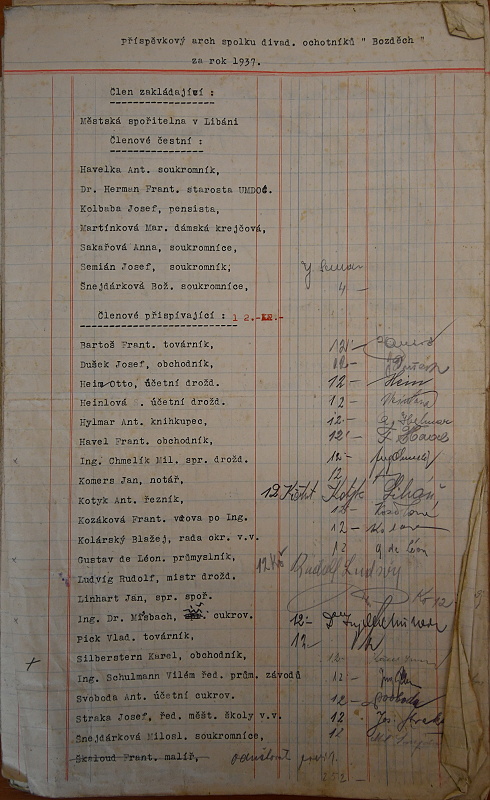 příspěvkový arch spolku divad. ochotníků " Bozděch "
za rok 1937.
Člen zakládající :
Městská spořitelna v Libáni
Členové čestní :
Havelka Ant. soukromník,
Dr. Herman Frant. starosta UMDOČ.
Kolbaba Josef, pensista,
Martínková Mar. dámská krejčová,
Sakařová Anna, soukromnice,
Semián Josef, soukromník,
Šnejdárková Bož. soukromnice, 4 –
Členové přispívající : 12.-Kč.-
Bartoš Frant. továrník, 12'–
Dušek Josef, obchodník, 12.–
Heim Otto, účetní drožd. 12 – Heim
Heinlová . účetní drožd. 12 –
Hylmar Ant. knihkupec, 12.– A. Hylmar
Havel Frant. obchodník, 12'– F. Havel
Ing. Chmelík Mil. spr. drožd. 12.– Ing Chmelík
Komers Jan, notář, 12
Kotyk Ant. řezník, 12 Kčst Kotyk Libáň
Kozáková Frant. vdova po Ing. 12 –
Kolárský Blažej, rada okr. v.v. 12 –
Gustav de Léon. průmyslník, 12 G de Léon
Ludvig Rudolf, mistr drožd. 12 Kč Rudolf Ludwig
Linhart Jan, spr. spoř. Kč 12
Ing. Dr. Mirsbach, cukrov. 12–
Pick Vlad. továrník, 12 Pick
Silberstern Karel, obchodník, 12 –
Ing. Schulmann Vilém řed. prům. závodů 12 –
Svoboda Ant. účetní cukrov. 12 – Svoboda
Straka Josef, řed. měšt. školy v.v. 12 Jos. Straka
Šnejdárková Milosl. soukromnice, 12
Škaloud Frant. malíř,
252 –